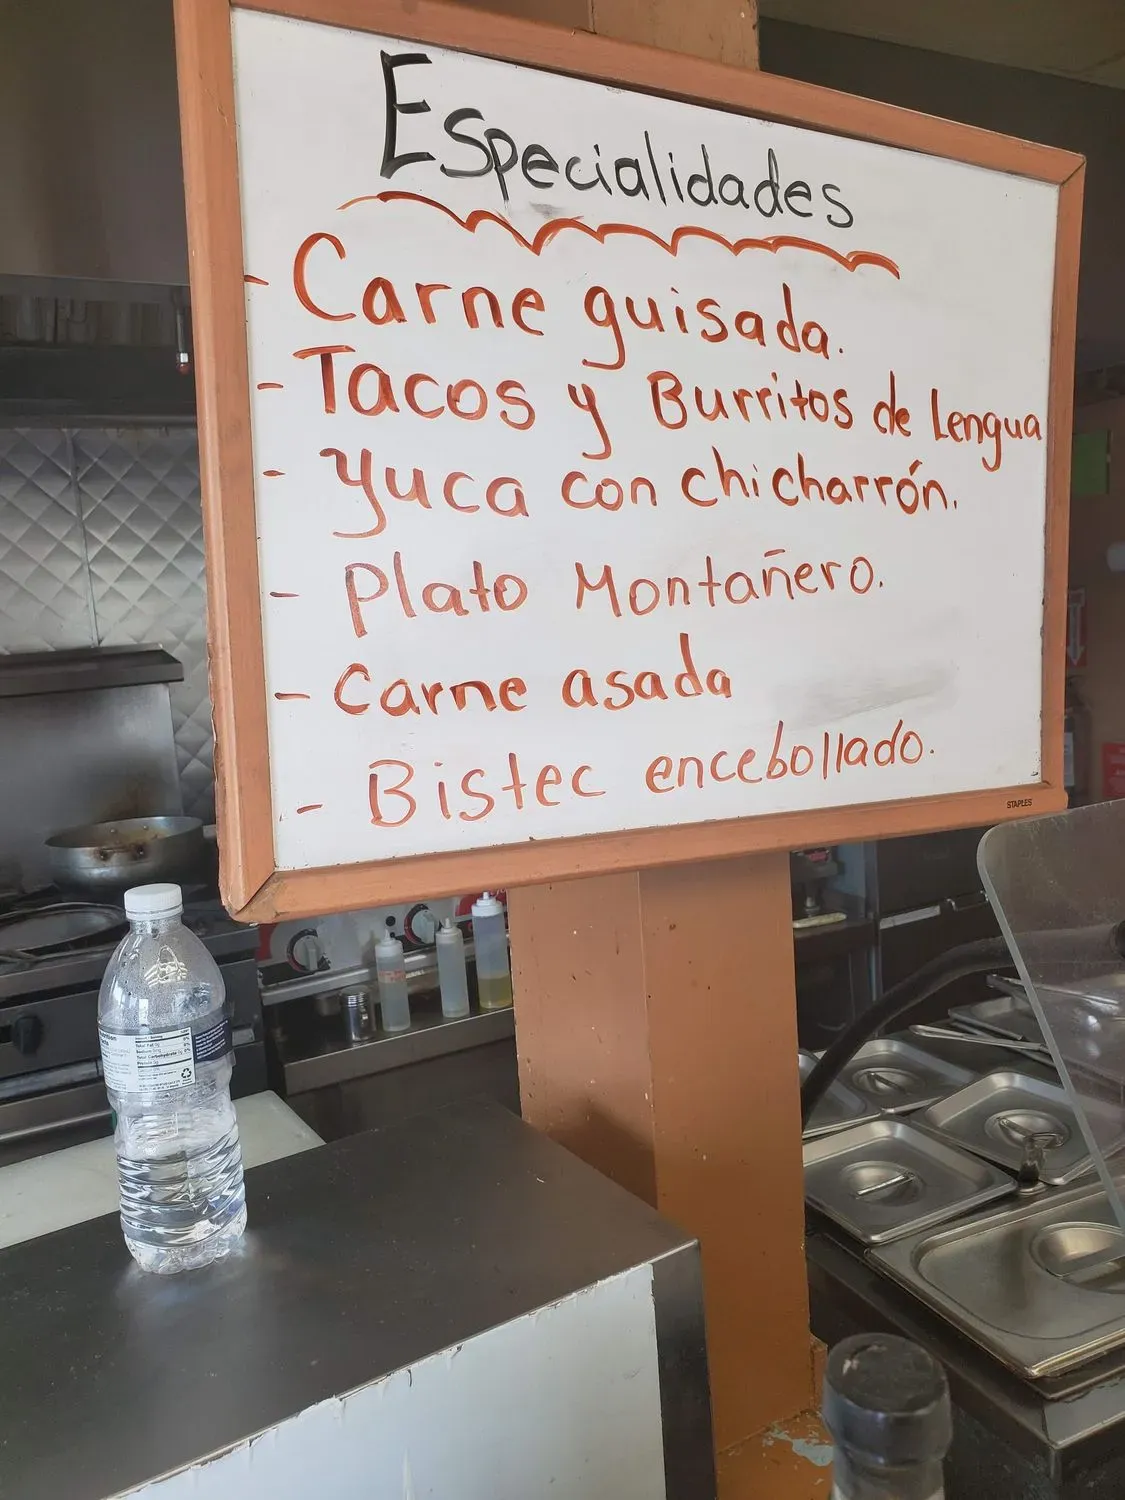 Especialidades
- Carne guisada.
- Tacos y Burritos de Lengua
- Yuca con chicharrón.
- Plato Montañero.
- Carne asada
- Bistec encebollado.
STAPLES